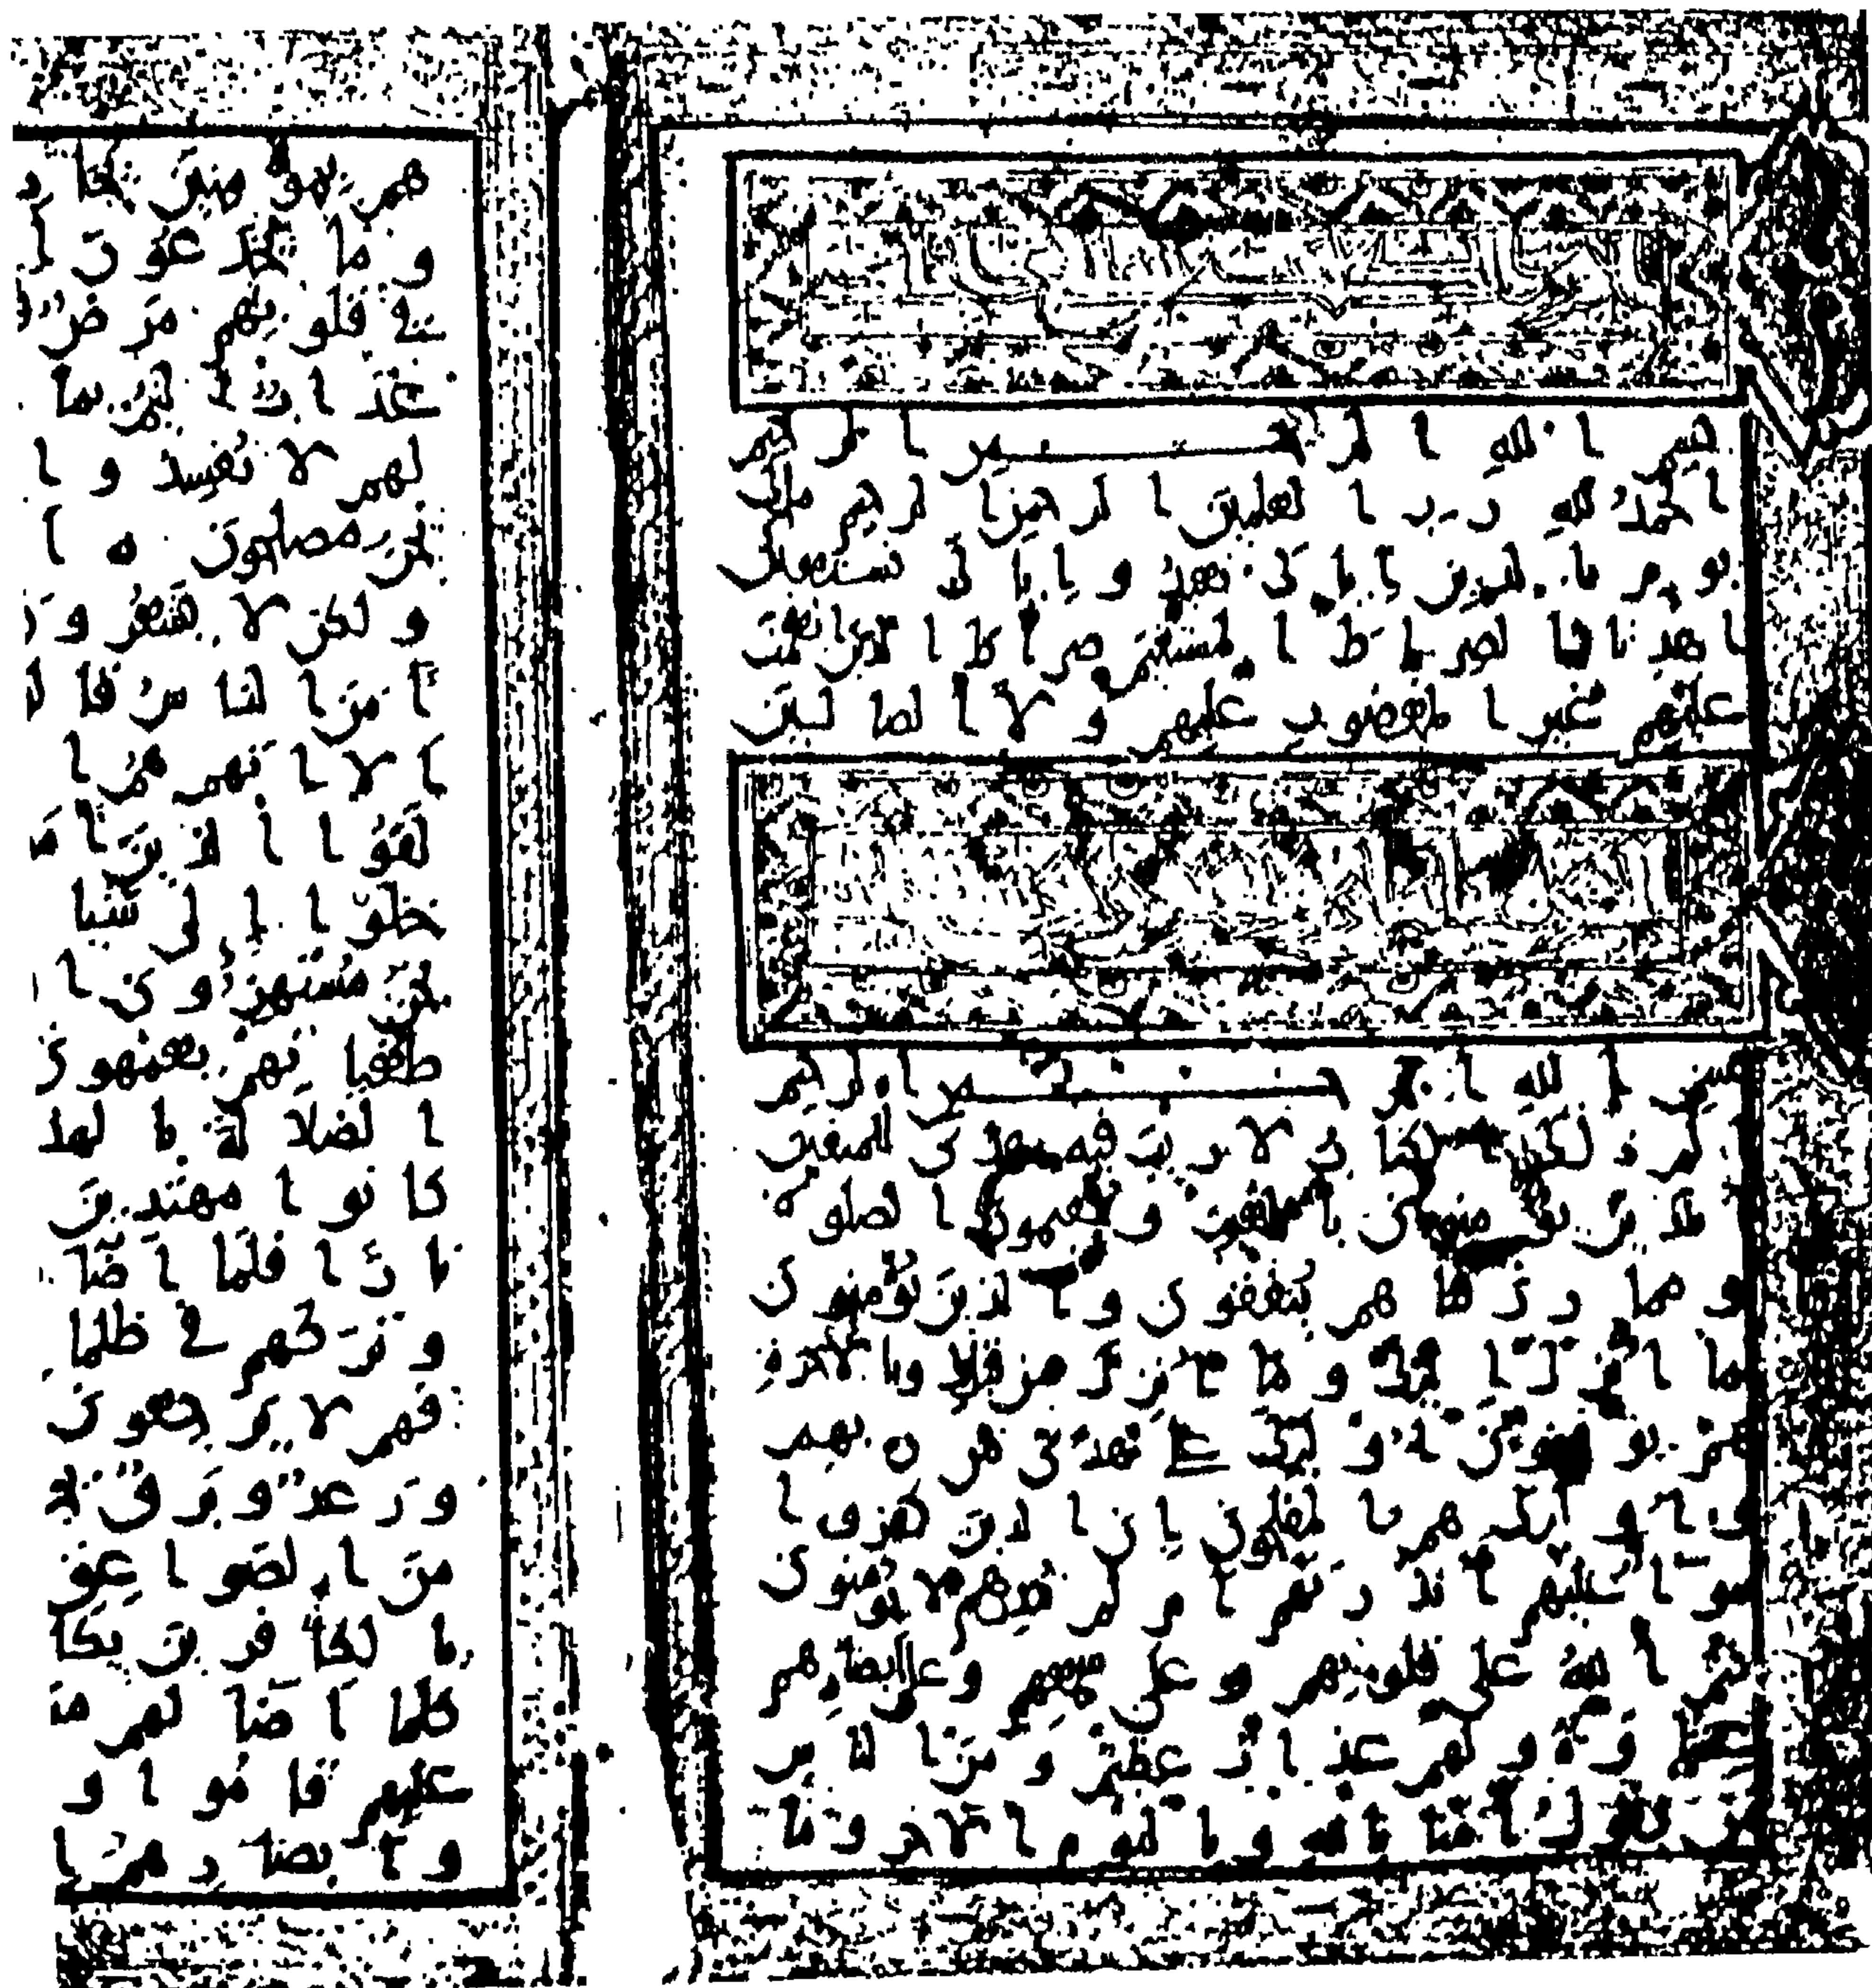 بسم الله الرحمن الرحيم
الحمد لله رب العلمين الرحمن الرحيم ملك
يوم الدين إياك نعبد وإياك نستعين
اهدنا الصراط المستقيم صراط الذين أنعمت
عليهم غير المغضوب عليهم ولا الضالين
بسم الله الرحمن الرحيم
الم ذلك الكتاب لا ريب فيه هدى للمتقين
الذين يؤمنون بالغيب ويقيمون الصلوة
ومما رزقناهم ينفقون والذين يؤمنون
بما أنزل إليك وما أنزل من قبلك وبالآخرة
هم يوقنون أولئك على هدى من ربهم
وأولئك هم المفلحون إن الذين كفروا
سواء عليهم أأنذرتهم أم لم تنذرهم لا يؤمنون
ختم الله على قلوبهم وعلى سمعهم وعلى أبصارهم
غشاوة ولهم عذاب عظيم ومن الناس
من يقول آمنا بالله وباليوم الآخر وما
هم بمؤمنين يخا
وما يخدعون
في قلوبهم مرض
عذاب أليم بما
لهم لا تفسدوا
نحن مصلحون ا
ولكن لا يشعرون
آمن الناس قا
ألا إنهم هم ا
لقوا الذين آم
خلوا إلى شيا
نحن مستهزؤن ا
طغيانهم يعمهون
الضلالة بالهد
كانوا مهتدين
نارا فلما أضا
وتركهم في ظلما
فهم لا يرجعون
ورعد وبرق
من الصواعق
بالكافرين يكا
كلما أضا لهم
عليهم قاموا و
وأبصارهم إ